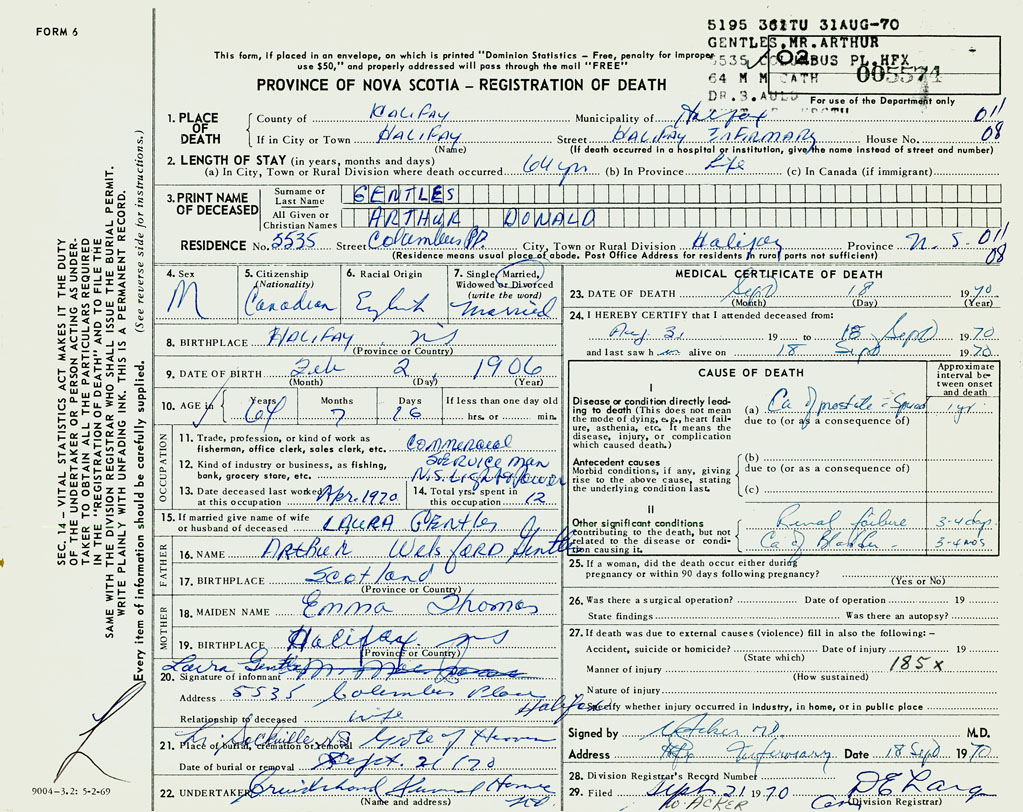 FORM 6
5195 361TU 31AUG-70
GENTLES, MR. ARTHUR
5535 COLUMBUS PL, HFX
64 M M CATH
DR. B. AULD
02
005574
For use of the Department only
This form, if placed in an envelope, on which is printed "Dominion Statistics – Free, penalty for improper
use $50," and properly addressed will pass through the mail "FREE"
PROVINCE OF NOVA SCOTIA – REGISTRATION OF DEATH
1. PLACE OF DEATH
County of HALIFAX Municipality of Halifax 011
If in City or Town HALIFAX Street HALIFAX INFIRMARY House No. 08
(Name) (If death occurred in a hospital or institution, give the name instead of street and number)
2. LENGTH OF STAY (in years, months and days)
(a) In City, Town or Rural Division where death occurred 64 yrs (b) In Province Life (c) In Canada (if immigrant)
3. PRINT NAME OF DECEASED
Surname or Last Name GENTLES
All Given or Christian Names ARTHUR DONALD
RESIDENCE No. 5535 Street Columbus Pl. City, Town or Rural Division Halifax Province N.S. 011
(Residence means usual place of abode. Post Office Address for residents in rural parts not sufficient) 08
4. Sex M
5. Citizenship (Nationality) Canadian
6. Racial Origin English
7. Single, Married, Widowed or Divorced (write the word) Married
8. BIRTHPLACE HALIFAX NS
(Province or Country)
9. DATE OF BIRTH Feb 2 1906
(Month) (Day) (Year)
10. AGE in Years 64 Months 7 Days 16 If less than one day old hrs. or min.
OCCUPATION
11. Trade, profession, or kind of work as fisherman, office clerk, sales clerk, etc. COMMERCIAL SERVICE MAN
12. Kind of industry or business, as fishing, bank, grocery store, etc. N.S. Light & Power
13. Date deceased last worked at this occupation Apr. 1970
14. Total yrs. spent in this occupation 12
15. If married give name of wife or husband of deceased LAURA Gentles
FATHER
16. NAME Arthur Welsford Gentles
17. BIRTHPLACE Scotland
(Province or Country)
MOTHER
18. MAIDEN NAME Emma Thomas
19. BIRTHPLACE Halifax NS
(Province or Country)
Laura Gentles
20. Signature of informant
Address 5535 Columbus Place Halifax
Relationship to deceased wife
21. Place of burial, cremation or removal Lr Sackville NS Gate of Heaven
Date of burial or removal Sept. 21/70
22. UNDERTAKER Cruikshank Funeral Home
(Name and address)
MEDICAL CERTIFICATE OF DEATH
23. DATE OF DEATH Sept 18 1970
(Month) (Day) (Year)
24. I HEREBY CERTIFY that I attended deceased from:
Aug 31 19 to 18 Sept 1970
and last saw h im alive on 18 Sept 1970
CAUSE OF DEATH
Approximate interval between onset and death
I
Disease or condition directly leading to death (This does not mean the mode of dying, e.g., heart failure, asthenia, etc. It means the disease, injury, or complication which caused death.)
(a) Ca of prostate = Spread 1 yr
due to (or as a consequence of)
Antecedent causes
Morbid conditions, if any, giving rise to the above cause, stating the underlying condition last.
(b)
due to (or as a consequence of)
(c)
II
Other significant conditions contributing to the death, but not related to the disease or condition causing it.
Renal failure 3-4 days
Ca of Bladder 3-4 mos
25. If a woman, did the death occur either during
pregnancy or within 90 days following pregnancy?
(Yes or No)
26. Was there a surgical operation? Date of operation 19
State findings Was there an autopsy?
27. If death was due to external causes (violence) fill in also the following: –
Accident, suicide or homicide? Date of injury 19
(State which)
Manner of injury 185X
(How sustained)
Nature of injury
Specify whether injury occurred in industry, in home, or in public place
Signed by W Acker M.D. M.D.
Address Hfx Infirmary Date 18 Sept 1970
28. Division Registrar's Record Number
29. Filed Sept. 21 1970
W ACKER
Division Registrar)
SEC. 14 – VITAL STATISTICS ACT MAKES IT THE DUTY
OF THE UNDERTAKER OR PERSON ACTING AS UNDER-
TAKER TO OBTAIN ALL THE PARTICULARS REQUIRED
IN THE "REGISTRATION OF DEATH" AND TO FILE THE
SAME WITH THE DIVISION REGISTRAR WHO SHALL ISSUE THE BURIAL PERMIT.
WRITE PLAINLY WITH UNFADING INK. THIS IS A PERMANENT RECORD.
Every item of information should be carefully supplied. (See reverse side for instructions.)
9004-3.2: 5-2-69